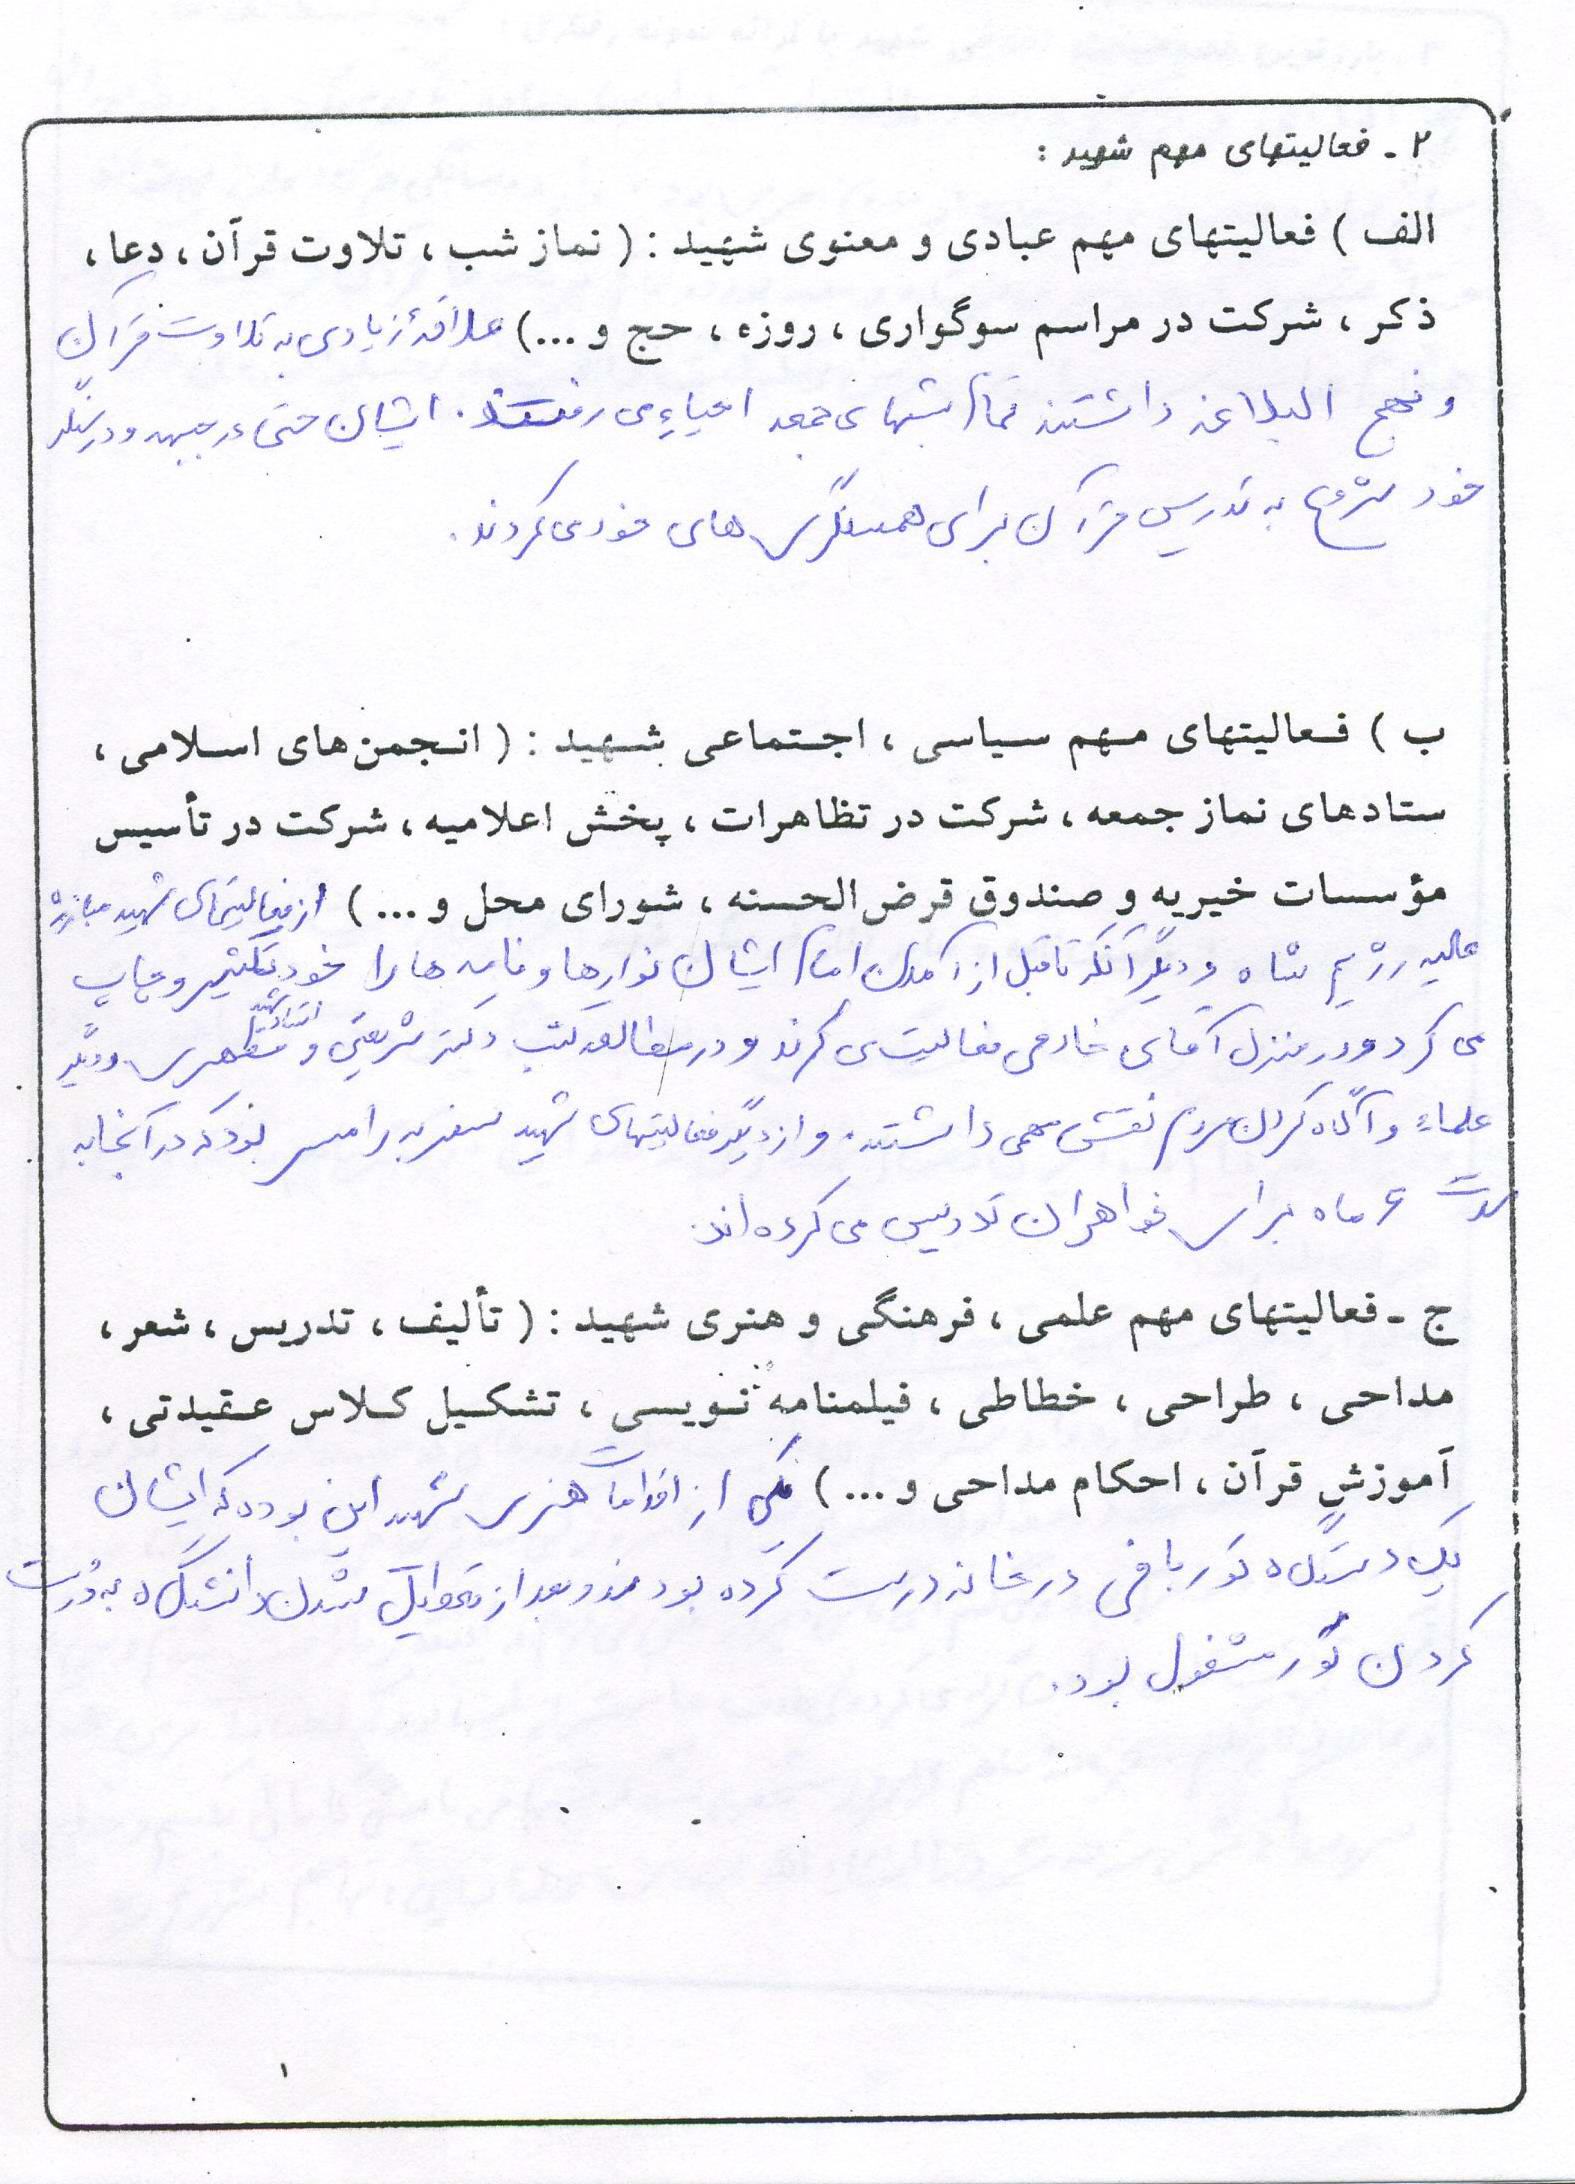 ۲ - فعالیتهای مهم شهید :
الف ) فعالیتهای مهم عبادی و معنوی شهید : ( نماز شب ، تلاوت قرآن ، دعا ،
ذکر ، شرکت در مراسم سوگواری ، روزه ، حج و ...) علاقهٔ زیادی به تلاوت قرآن
و نهج البلاغه داشتند تمام شبهای جمعه احیاء می رفتند . ایشان حتی در جبهه و در سنگر
خود شروع به تدریس قرآن برای همسنگری های خود می کردند .
ب ) فعالیتهای مهم سیاسی ، اجتماعی شهید : ( انجمن‌های اسلامی ،
ستادهای نماز جمعه ، شرکت در تظاهرات ، پخش اعلامیه ، شرکت در تأسیس
مؤسسات خیریه و صندوق قرض‌الحسنه ، شورای محل و ... ) از فعالیتهای شهید مبارزه
علیه رژیم شاه و دیگر آنکه تا قبل از آمدن امام ایشان نوارها و نامه ها را خود تکثیر و چاپ
می کرد و در منزل آقای خادمی فعالیت می کردند و در مطالعه کتب دکتر شریعتی و استاد شهید مطهری و دیگر
علماء و آگاه کردن مردم نقش مهمی داشتند . و از دیگر فعالیتهای شهید سفر به رامسر بود که در آنجا به
مدت ۶ ماه برای خواهران تدریس می کرده اند .
ج - فعالیتهای مهم علمی ، فرهنگی و هنری شهید : ( تألیف ، تدریس ، شعر ،
مداحی ، طراحی ، خطاطی ، فیلمنامه نویسی ، تشکیل کلاس عقیدتی ،
آموزش قرآن ، احکام مداحی و ... ) یکی از اقدامات هنری شهید این بوده که ایشان
یک دستگاه تور بافی در خانه درست کرده بودند و بعد از تعطیل شدن دانشگاه به درست
کردن تور مشغول بود .
۱